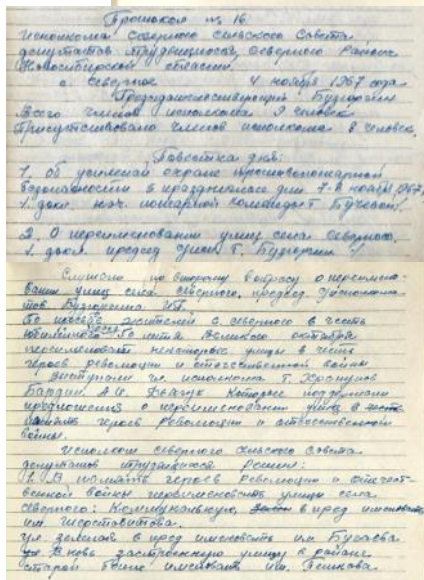 Протокол № 16
исполкома Северного сельского Совета
депутатов трудящихся, Северного района
Новосибирской области.
с. Северное 4 ноября 1967 года
Председательствующий
Всего членов исполкома 9 человек
Присутствовало членов исполкома 8 человек.
Повестка дня:
1. Об усилении охране противопожарной
безопасности в праздничные дни 7-8 ноября 1967
1. докл. нач. пожарной команды Т.
2. О переименовании улиц села Северного.
1. докл. председ Т.
Слушали по второму вопросу о переимено-
вании улиц села Северного, председ
тов.
жителей с. Северного в честь
юбилейного 50 летия Великого октября
переименовать некоторые улицы в честь
героев революции и отечественной войны
Выступали чл. исполкома Т.
А.Е. которые поддержали
предложения о переименовании улиц в честь
памяти героев революции и отечественной
войны.
Исполком Северного сельского Совета
депутатов трудящихся решил:
1. В память героев революции и отечест-
венной войны переименовать улицы села
Северного: Коммунальную, в пред именовать
им.
ул. в пред именовать им.
ул. Вновь застроенную улицу в районе
старой бани именовать им.